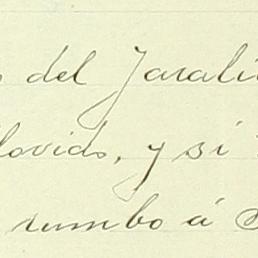 del Jarali
lovido, y si
rumbo á